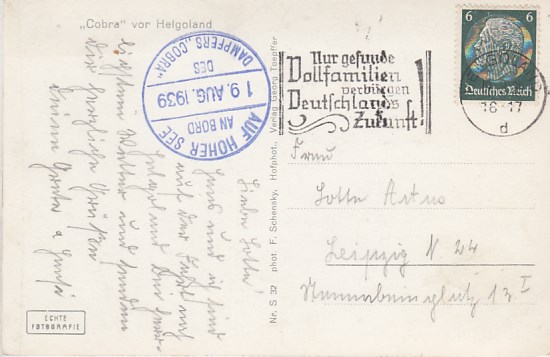 „Cobra" vor Helgoland
AUF HOHER SEE
AN BORD
19. AUG. 1939
DES
DAMPFERS „COBRA"
Nur gesunde
Vollfamilien
verbürgen
Deutschlands
Zukunft!
6 6
Deutsches Reich
16-17
d
Liebe Lotte!
Hans und ich sind
auf der Fahrt nach
Helgoland
Wetter und senden
Dir herzliche Grüße
Deine Grete u. Hans
Frau
Lotte
Leipzig N. 24
13 I
Nr. S 32 phot. F. Schensky, Hofphot., Verlag Georg Toepffer
ECHTE
FOTOGRAFIE